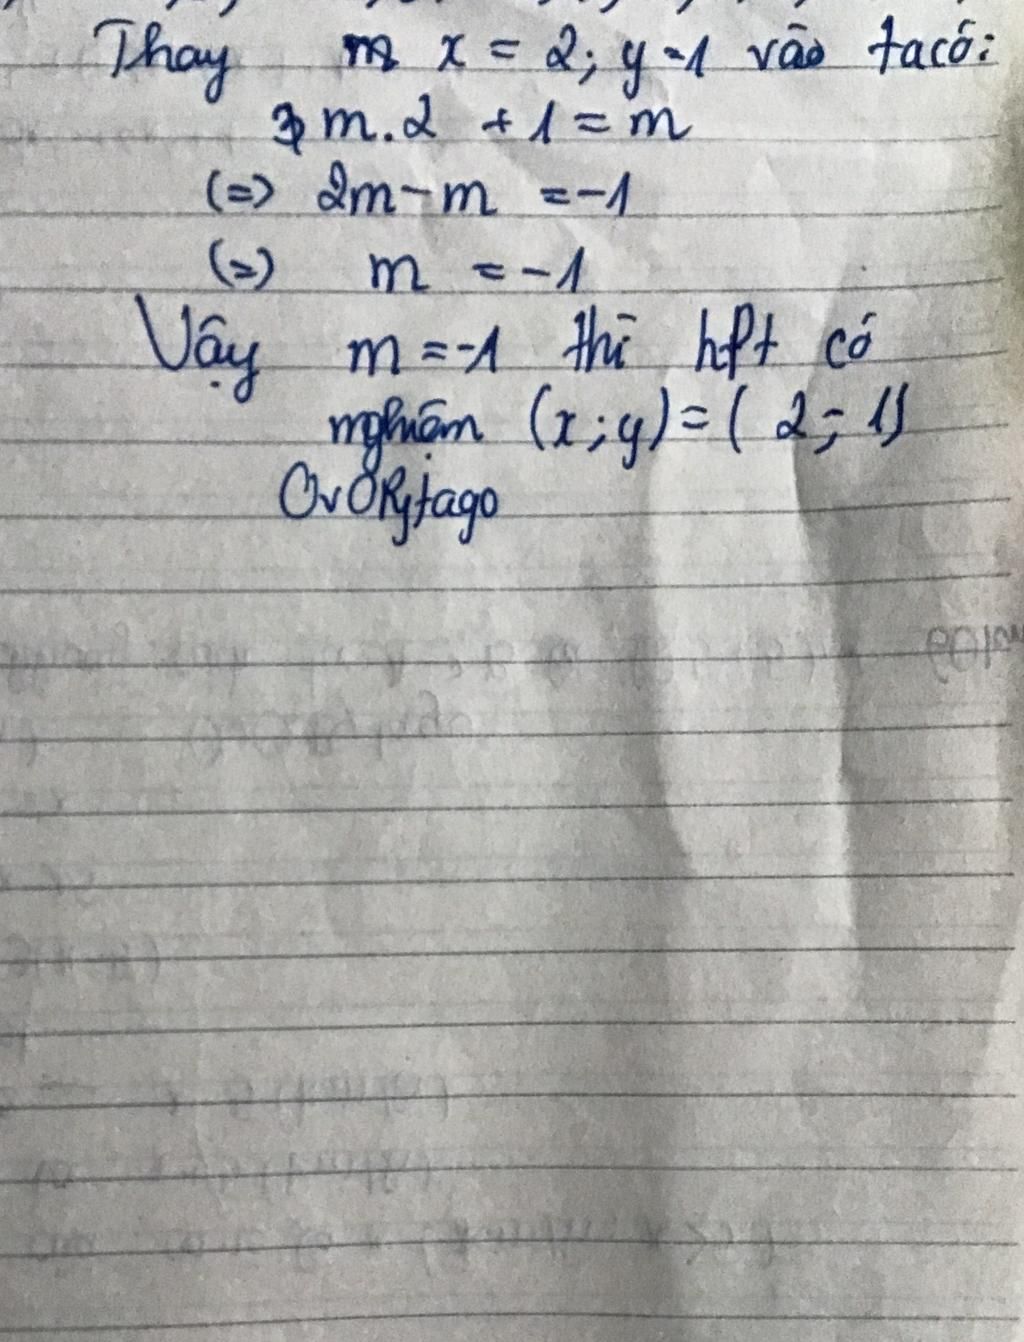 Thay x = 2; y = 1 vào ta có:
m.2 + 1 = m
(=) 2m - m = -1
(=) m = -1
Vậy m = -1 thì hpt có
nghiệm (x; y) = ( 2; 1)